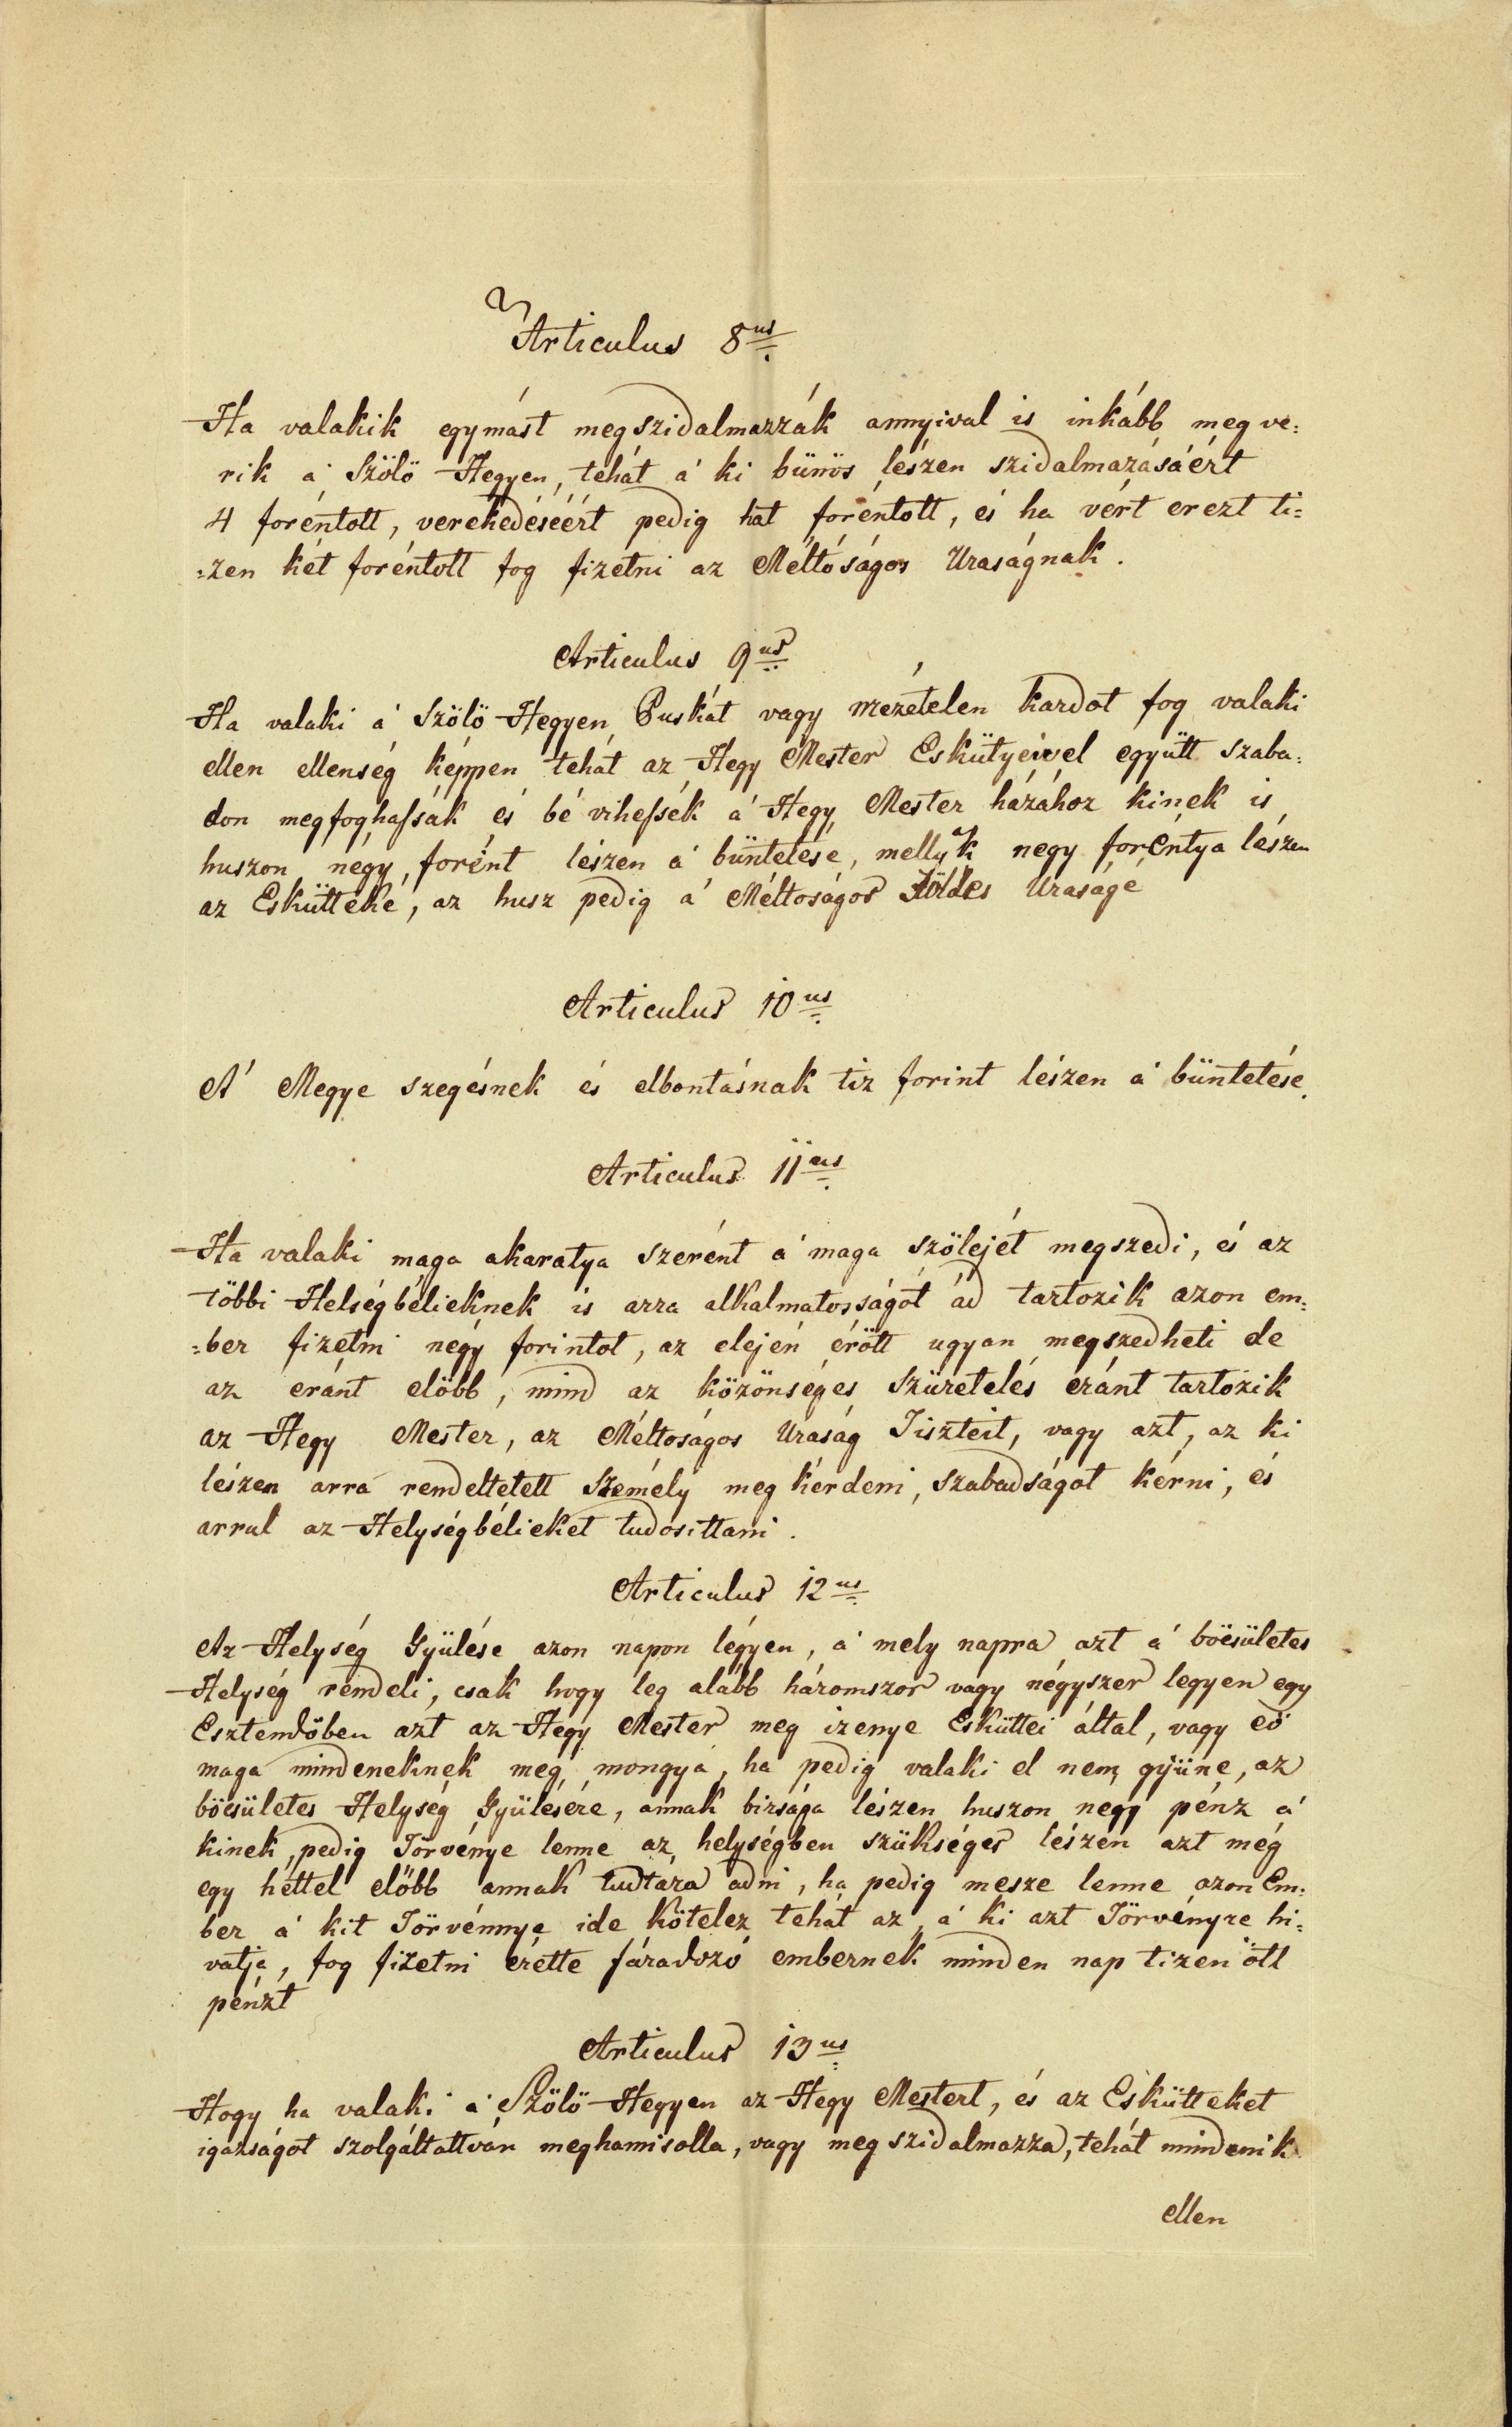 Articulus 8us
Ha valakik egymást megszidalmazzák annyival is inkább meg ve:
rik a' Szölö Hegyen, tehát a' ki bünös lészen szidalmazásáért
4 foréntott, verekedéséért pedig hat foréntott, és ha vért erezt ti=
=zen két foréntott fog fizetni az Méltóságos Uraságnak.
Articulus 9us
Ha valaki a' Szölö Hegyen Puskát vagy mezételen kardot fog valaki
ellen ellenség képpen tehát az Hegy Mester Eskütyeivel együtt szaba:
don megfoghassák és bé vihessék a' Hegy Mester házához kinek is
huszon négy forént lészen a' büntetése, mellyk négy foréntya lészen
az Eskütteké, az husz pedig a' Méltoságos Földes Uraságé
Articulus 10us
A' Megye szegésnek és elbontásnak tiz forint lészen a' büntetése.
Articulus 11us
Ha valaki maga akaratya szerént a' maga szölejét megszedi, és az
többi Helségbélieknek is arra alkalmatosságot ád tartozik azon em:
=ber fizetni négy forintot, az elején érött ugyan megszedheti de
az eránt elöbb, mind az közönséges Szüretelés eránt tartozik
az Hegy Mester, az Méltoságos Uraság Tiszteit, vagy azt, az ki
lészen arra rendeltetett Személy meg kérdeni, szabadságot kérni, és
arrul az Helységbélieket tudosittani.
Articulus 12us
Az Helység Gyülése azon napon légyen, a' mely napra azt a' böcsületes
Helység rendeli, csak hogy leg alább háromszor vagy négyszer legyen egy
Esztendöben azt az Hegy Mester meg izenye Esküttei által, vagy eö
maga mindeneknek meg mongya, ha pedig valaki el nem gyüne, az
böcsületes Helység Gyülésére, annak birsága lészen huszon negy pénz a'
kinek pedig Törvénye lenne az helységben szükséges lészen azt még
egy héttel előbb annak tudtára adni, ha pedig mesze lenne azon Em:
ber a' kit Törvénnye ide kötelez tehát az a' ki azt Törvényre hi=
vatja, fog fizetni érette fáradozó embernek minden nap tizen ött
pénzt
Articulus 13us
Hogy ha valaki a' Szölö Hegyen az Hegy Mestert, és az Eskütteket
igazságot szolgáltattván meghamisolla, vagy meg szidalmazza, tehát mindenik
ellen